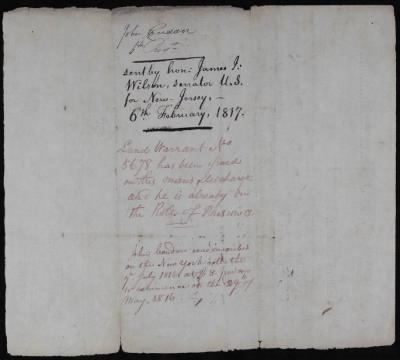 John Condon
6th Feby
sent by hon: James J:
Wilson, senator U.S.
for New-Jersey, -
6th February, 1817.
Land Warrant No
5678 has been issued
on this mans discharge
and he is already on
the Roles of Pensions
John Condon was inscribed
on the New York rolls the
July 1816 at $8
to commence on the 29th of
May 1816.